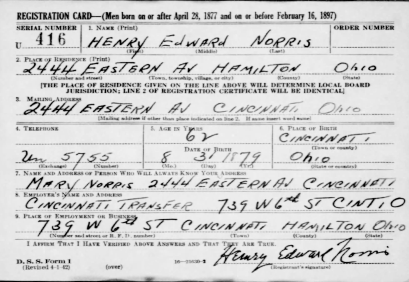 REGISTRATION CARD—(Men born on or after April 28, 1877 and on or before February 16, 1897)
SERIAL NUMBER 1. NAME (Print) ORDER NUMBER
U 416 HENRY EDWARD NORRIS
(First) (Middle) (Last)
2. PLACE OF RESIDENCE (Print)
2444 EASTERN AV HAMILTON OHIO
(Number and street) (Town, township, village, or city) (County) (State)
[THE PLACE OF RESIDENCE GIVEN ON THE LINE ABOVE WILL DETERMINE LOCAL BOARD
JURISDICTION; LINE 2 OF REGISTRATION CERTIFICATE WILL BE IDENTICAL]
3. MAILING ADDRESS
2444 EASTERN AV CINCINNATI OHIO
(Mailing address if other than place indicated on line 2. If same insert word same)
4. TELEPHONE 5. AGE IN YEARS 6. PLACE OF BIRTH
62 CINCINNATI
DATE OF BIRTH (Town or county)
5755 8 31 1879 OHIO
(Exchange) (Number) (Mo.) (Day) (Yr.) (State or country)
7. NAME AND ADDRESS OF PERSON WHO WILL ALWAYS KNOW YOUR ADDRESS
MARY NORRIS 2444 EASTERN AV CINCINNATI
8. EMPLOYER'S NAME AND ADDRESS
CINCINNATI TRANSFER 739 W 6th ST CINTI O
9. PLACE OF EMPLOYMENT OR BUSINESS
739 W 6th ST CINCINNATI HAMILTON OHIO
(Number and street or R. F. D. number) (Town) (County) (State)
I AFFIRM THAT I HAVE VERIFIED ABOVE ANSWERS AND THAT THEY ARE TRUE.
D. S. S. Form 1 Henry Edward Norris
(Revised 4-1-42) (over) (Registrant's signature)